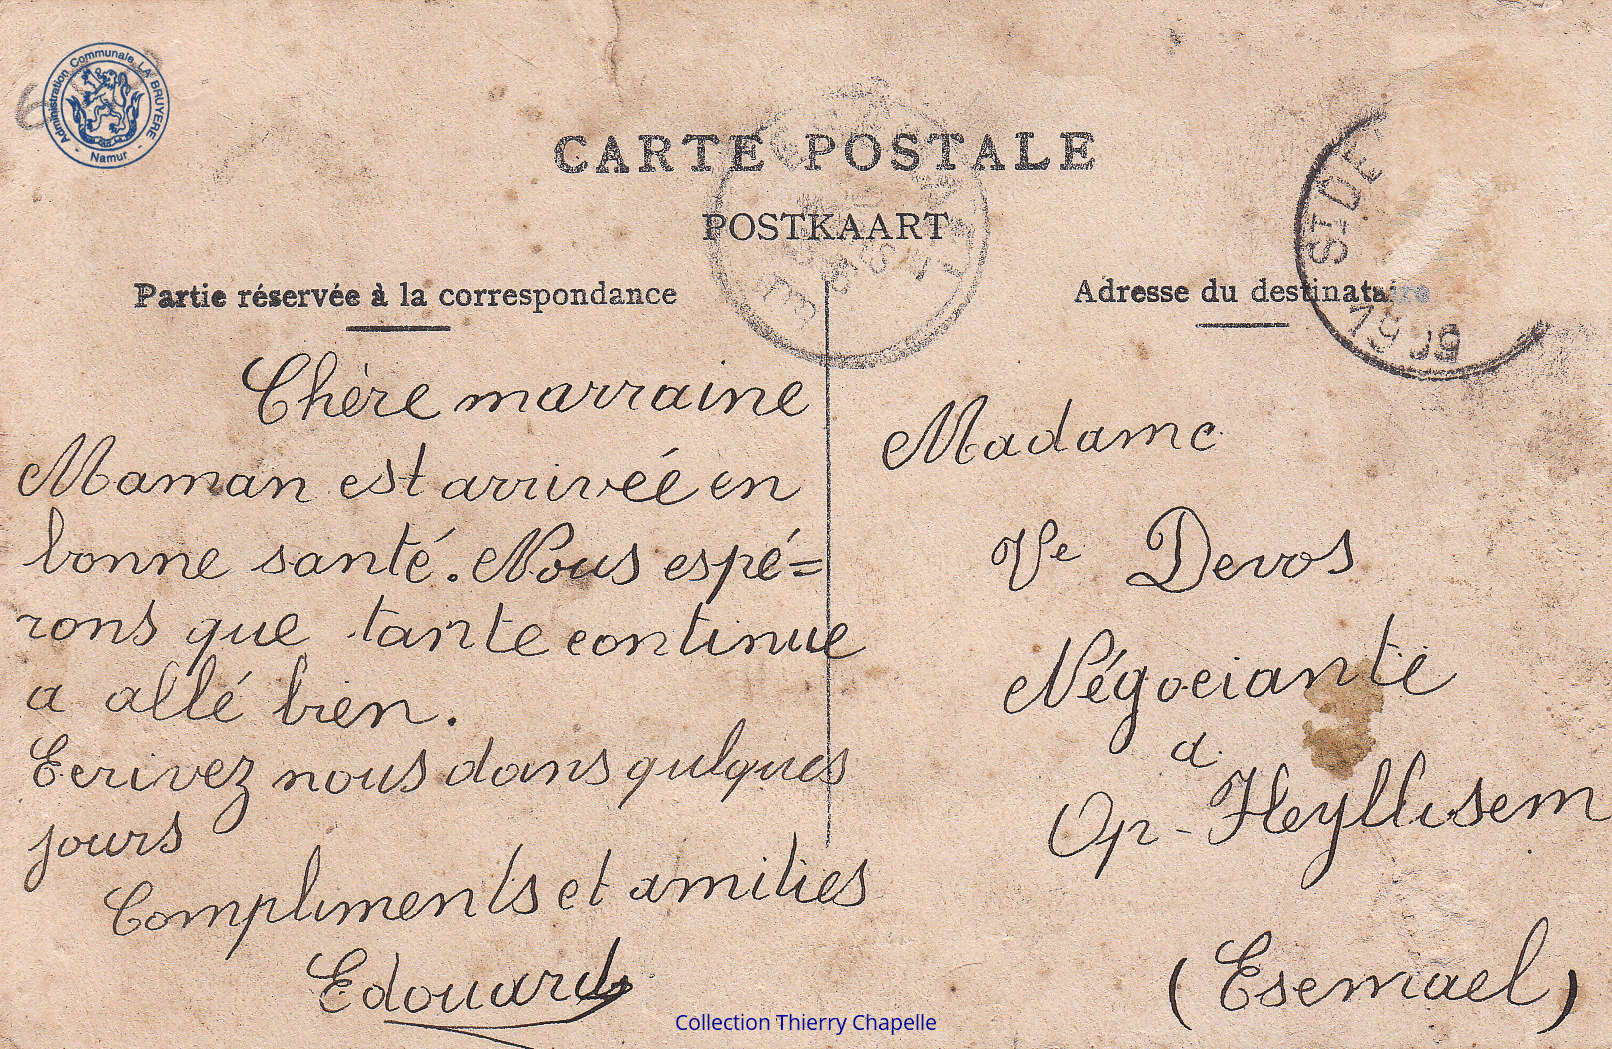 Administration Communale LA BRUYERE
- Namur -
CARTE POSTALE
POSTKAART
Partie réservée à la correspondance
Chère marraine
Maman est arrivéé en
bonne santé. Nous espé=
rons que tante continue
a allé bien.
Ecrivez nous dans qulques
jours
Compliments et amitiés
Edouard
Adresse du destinataire
ST DE
1909
Madame
Ve Devos
Négociante
à
Op-Heyllisem
(Esemael)
Collection Thierry Chapelle